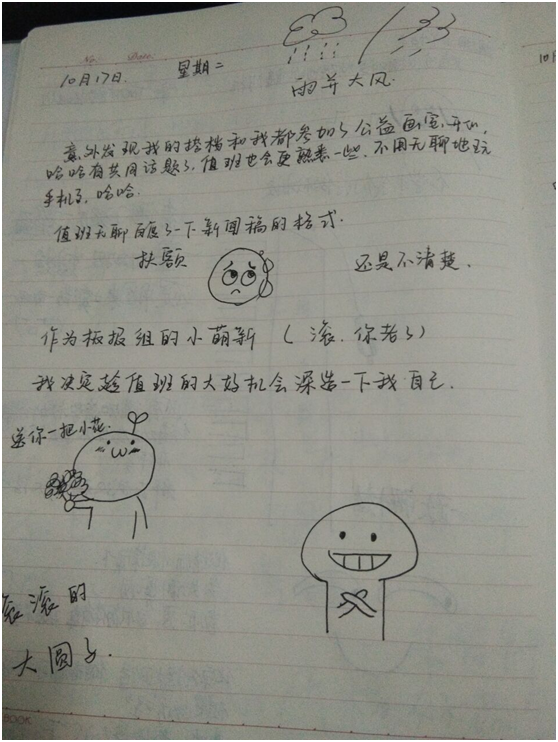 No.
Date.
10月17日. 星期二
雨并大风.
意外发现我的搭档和我都参加了公益画室,开心,
哈哈有共同话题了,值班也会更熟悉一些,不用无聊地玩
手机了,哈哈.
值班无聊百度了一下新闻稿的格式.
扶额 还是不清楚.
作为板报组的小萌新 ( 滚.你老了)
我决定趁值班的大好机会深造一下我自己.
送你一把小花.
滚滚的
大圆子.
BOOK